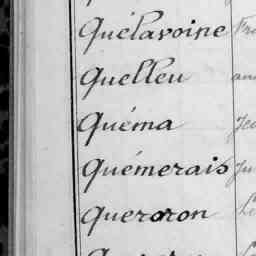 Quélavoine
Quelleu
Quéma
Quémerais
Queroron